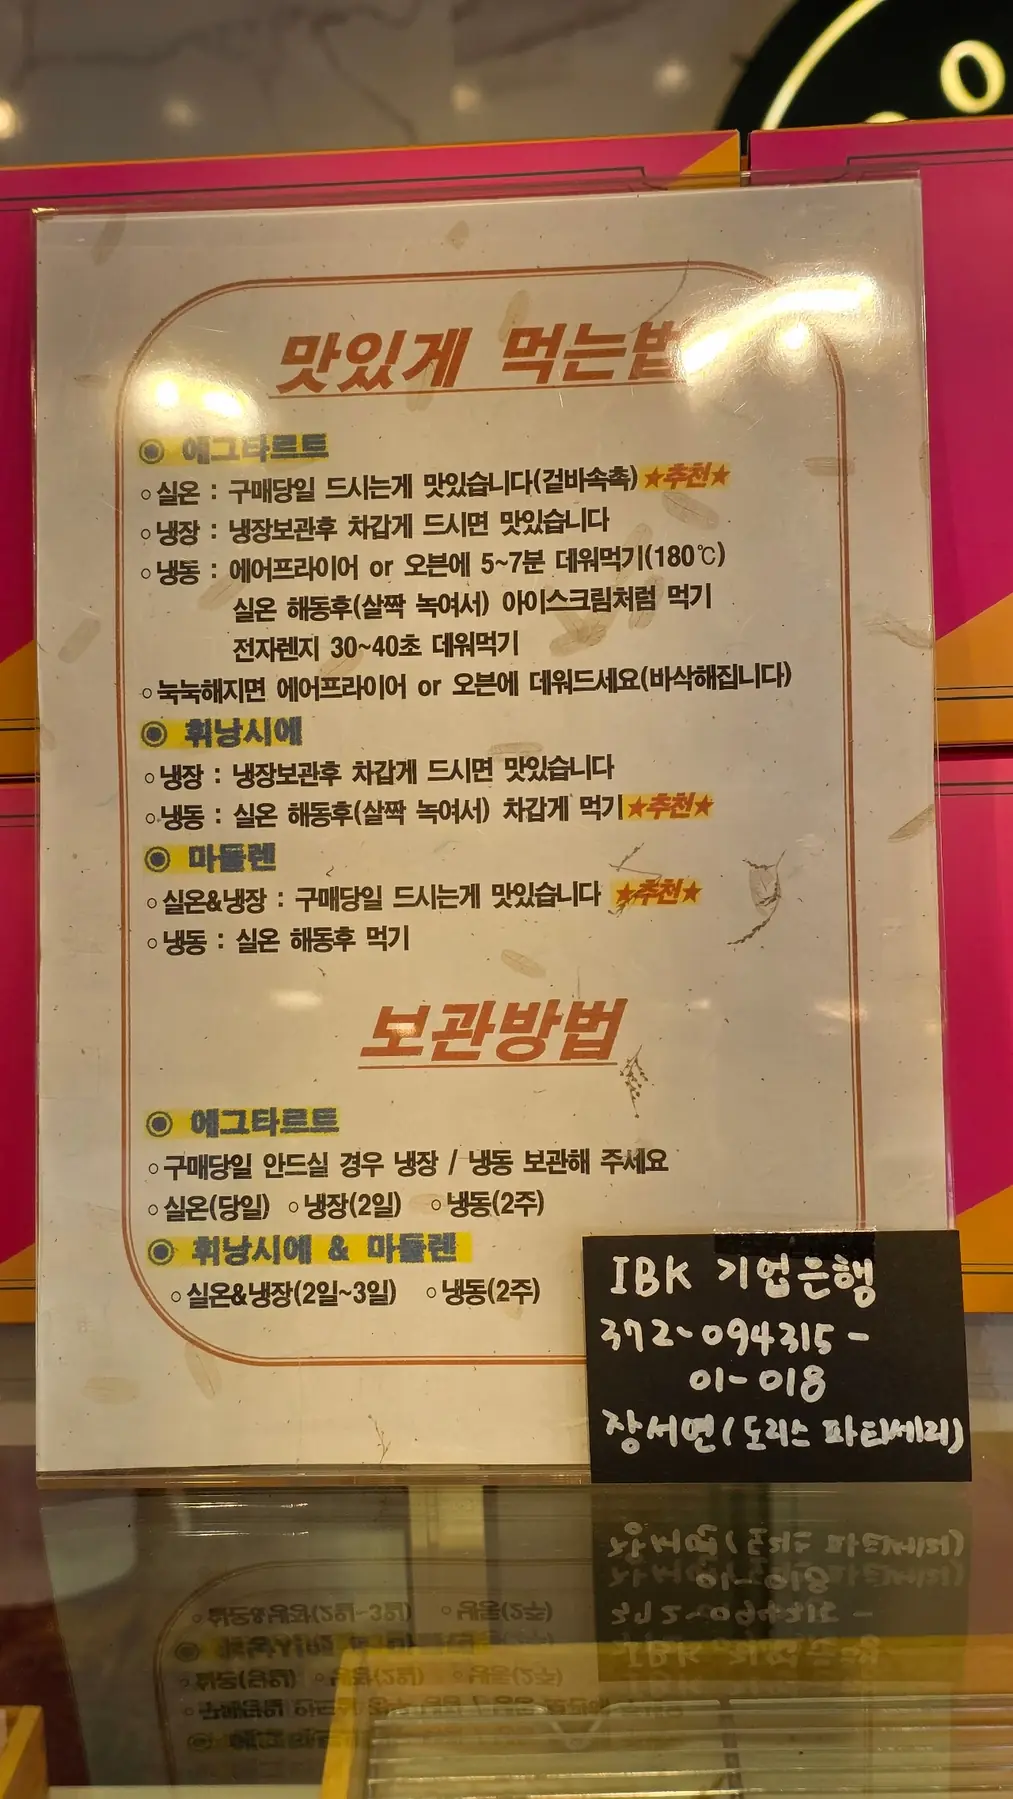 맛있게 먹는법
◉ 에그타르트
○실온 : 구매당일 드시는게 맛있습니다(겉바속촉)★추천★
○냉장 : 냉장보관후 차갑게 드시면 맛있습니다
○냉동 : 에어프라이어 or 오븐에 5~7분 데워먹기(180℃)
실온 해동후(살짝 녹여서) 아이스크림처럼 먹기
전자렌지 30~40초 데워먹기
○눅눅해지면 에어프라이어 or 오븐에 데워드세요(바삭해집니다)
◉ 휘낭시에
○냉장 : 냉장보관후 차갑게 드시면 맛있습니다
○냉동 : 실온 해동후(살짝 녹여서) 차갑게 먹기★추천★
◉ 마들렌
○실온&냉장 : 구매당일 드시는게 맛있습니다 ★추천★
○냉동 : 실온 해동후 먹기
보관방법
◉ 에그타르트
○구매당일 안드실 경우 냉장 / 냉동 보관해 주세요
○실온(당일) ○냉장(2일) ○냉동(2주)
◉ 휘낭시에 & 마들렌
○실온&냉장(2일~3일) ○냉동(2주)
IBK 기업은행
372-094315-
01-018
장서면(도리스 파티세리)